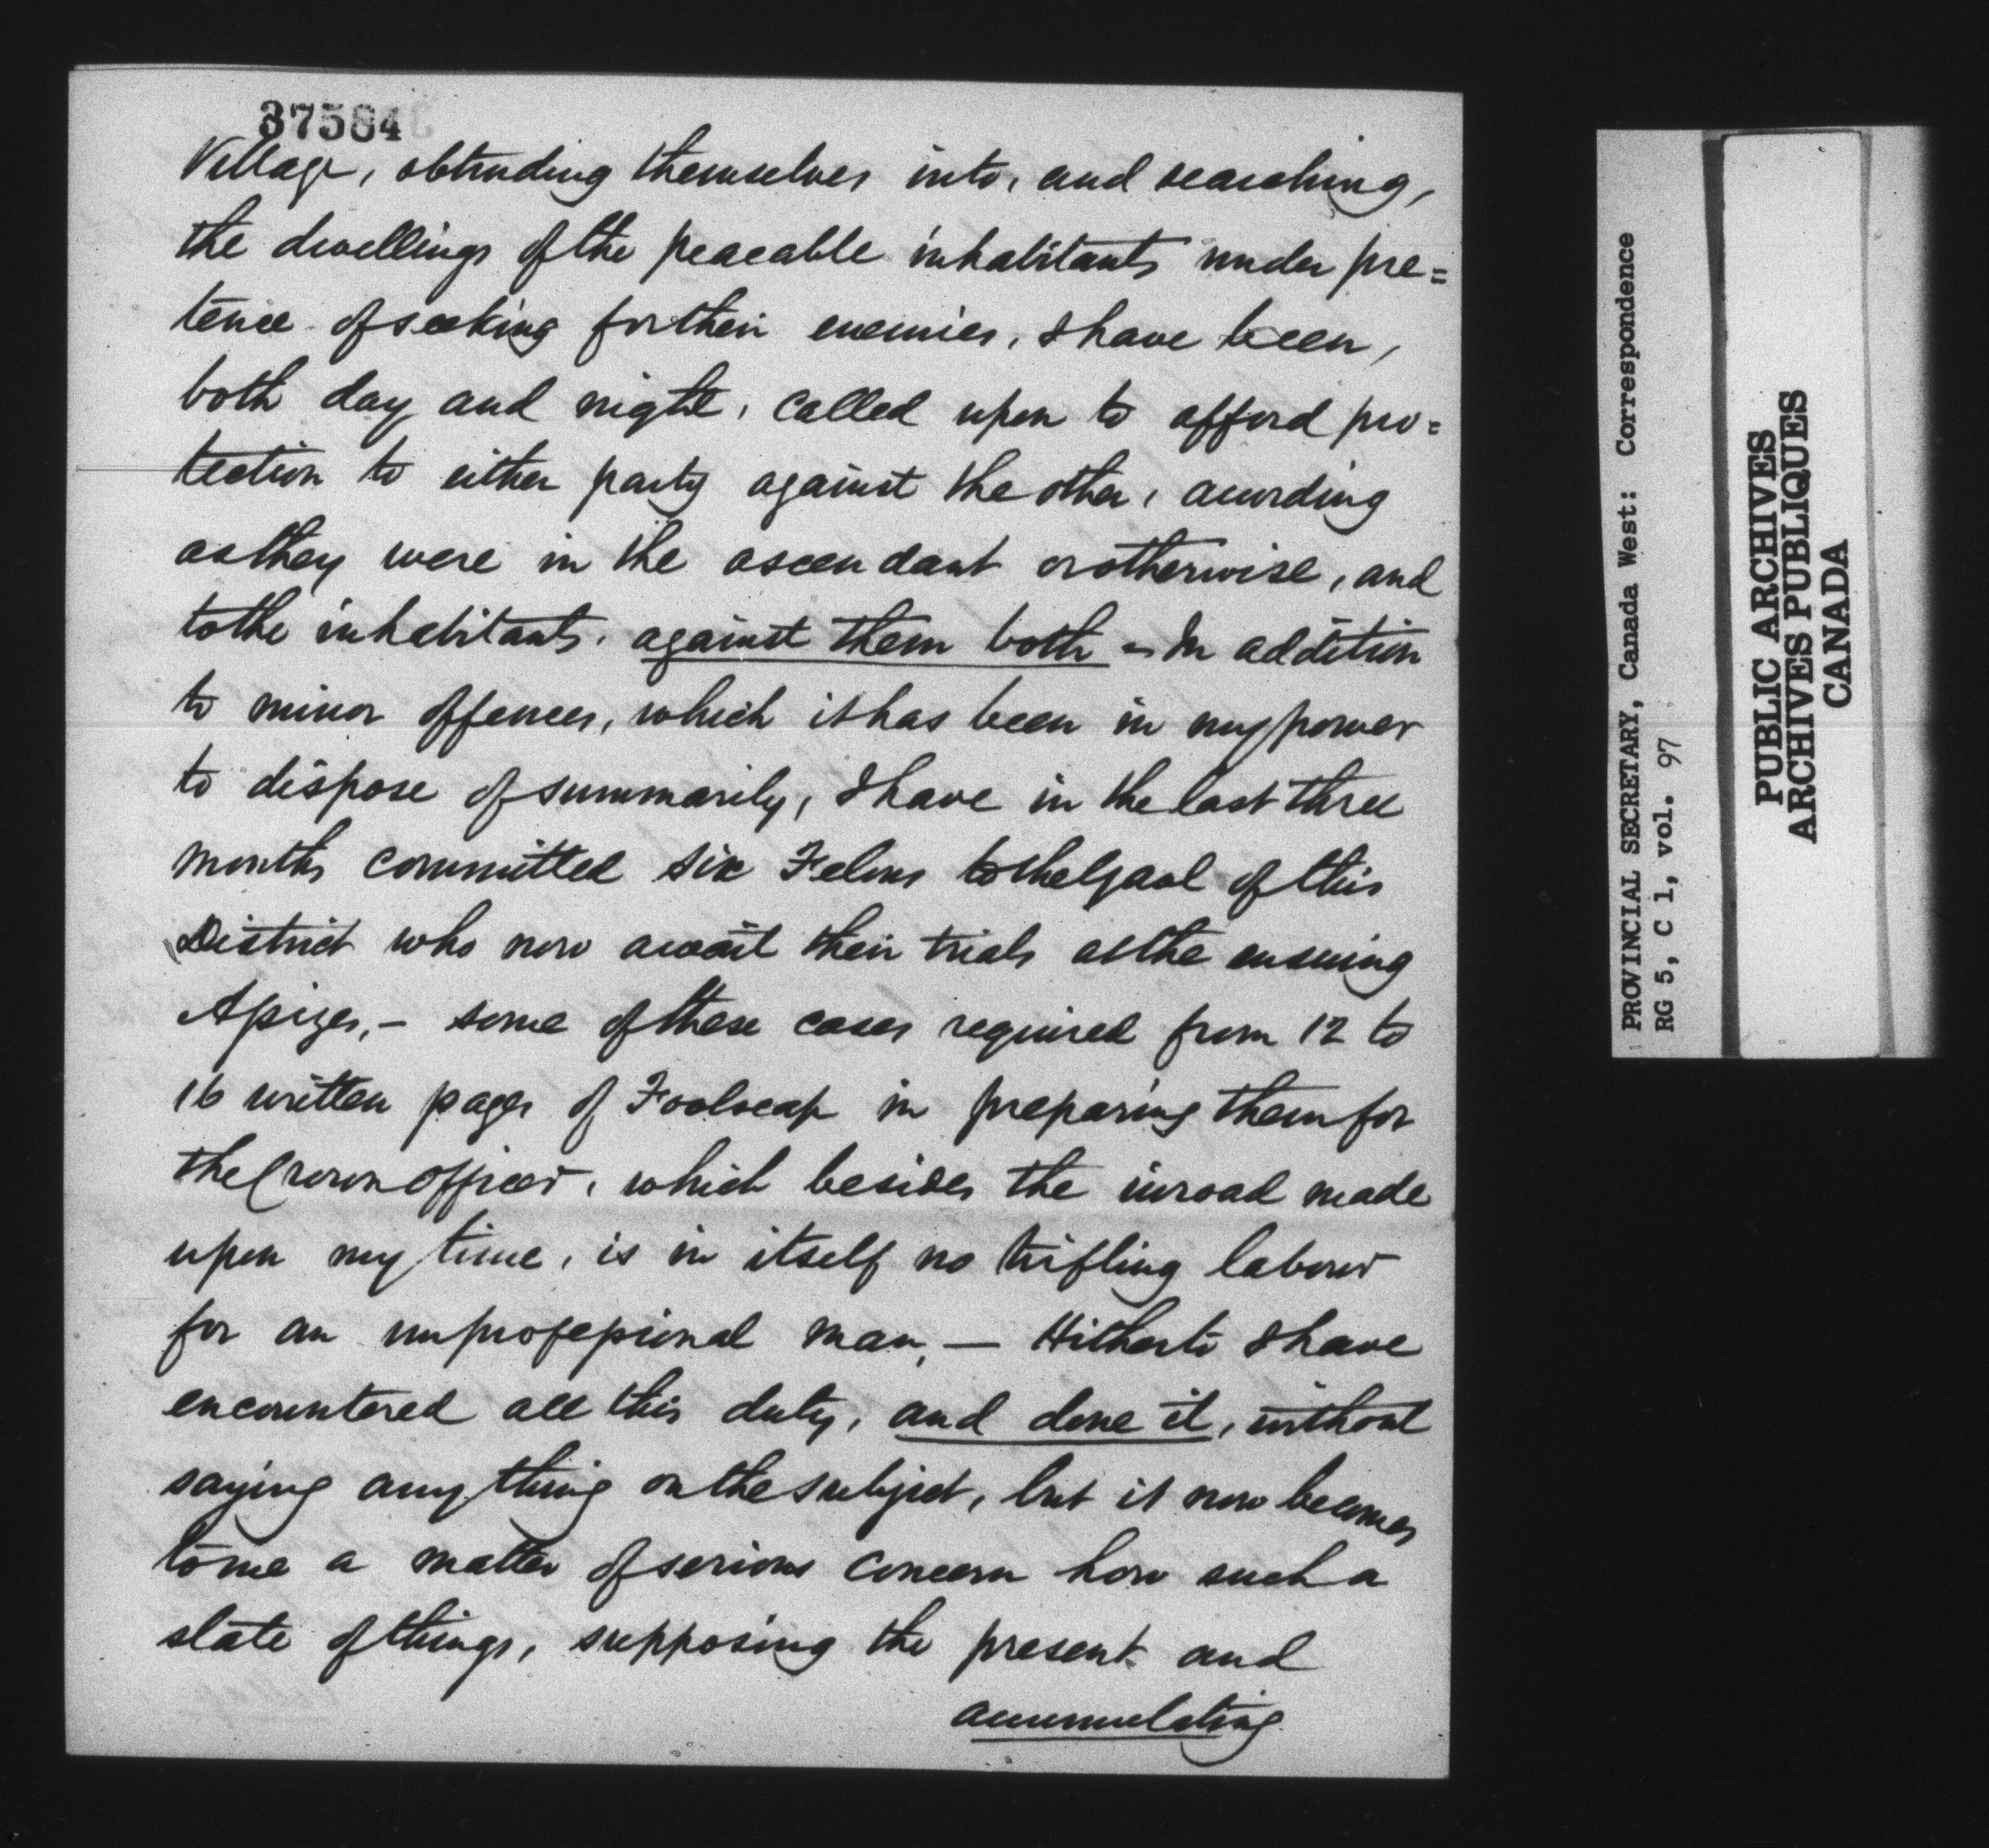 37584
Village, obtruding themselves into, and searching,
the dwellings of the peaceable inhabitants under pre=
tence of seeking for their enemies, I have been,
both day and night, called upon to afford pro=
tection to either party against the other, according
as they were in the ascendant or otherwise, and
to the inhabitants, against them both - In addition
to minor offences, which it has been in my power
to dispose of summarily, I have in the last three
months committed six Felons to the Gaol of this
District who now await their trials at the ensuing
Assizes, — some of these cases required from 12 to
16 written pages of Foolscap in preparing them for
the Crown officer, which besides the inroad made
upon my time, is in itself no trifling labour
for an unprofessional man, — Hitherto I have
encountered all this duty, and done it, without
saying any thing on the subject, but it now becomes
to me a matter of serious concern how such a
state of things, supposing the present and
accumulating
PROVINCIAL SECRETARY, Canada West: Correspondence
RG 5, C 1, vol. 97
PUBLIC ARCHIVES
ARCHIVES PUBLIQUES
CANADA